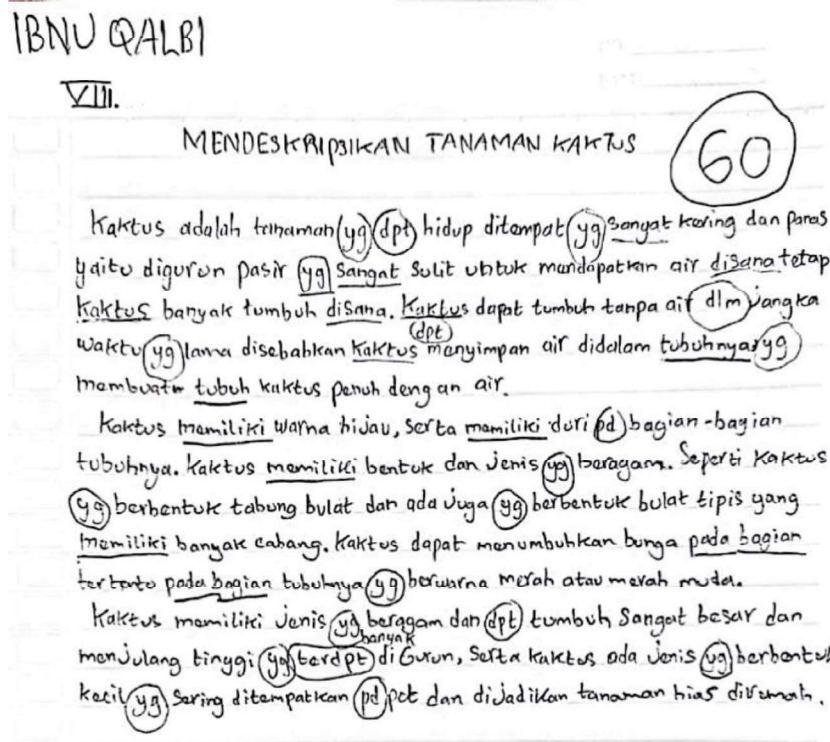 IBNU QALBI
VIII.
MENDESKRIPSIKAN TANAMAN KAKTUS
60
Kaktus adalah tanaman yg dpt hidup ditempat yg sangat kering dan panas
yaitu digurun pasir yg sangat sulit untuk mendapatkan air disana tetap
kaktus banyak tumbuh disana. Kaktus dapat tumbuh tanpa air dlm jangka
(dpt)
waktu yg lama disebabkan kaktus menyimpan air didalam tubuhnya, yg
membuat tubuh kaktus penuh dengan air.
Kaktus memiliki warna hijau, serta memiliki duri pd bagian-bagian
tubuhnya. Kaktus memiliki bentuk dan jenis yg beragam. Seperti Kaktus
yg berbentuk tabung bulat dan ada juga yg berbentuk bulat tipis yang
memiliki banyak cabang. Kaktus dapat menumbuhkan bunga pada bagian
pada bagian tubuhnya yg berwarna merah atau merah muda.
Kaktus memiliki jenis yg beragam dan dpt tumbuh Sangat besar dan
banyak
menjulang tinggi yg terdpt di Gurun, Serta kaktus ada jenis yg berbentuk
kecil yg Sering ditempatkan pd pot dan dijadikan tanaman hias dirumah.